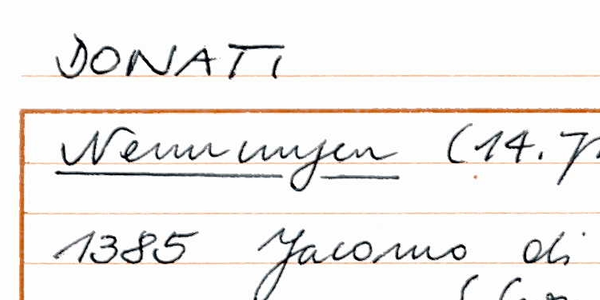 DONATI
Nennungen (14. Jh
1385 Jacomo di